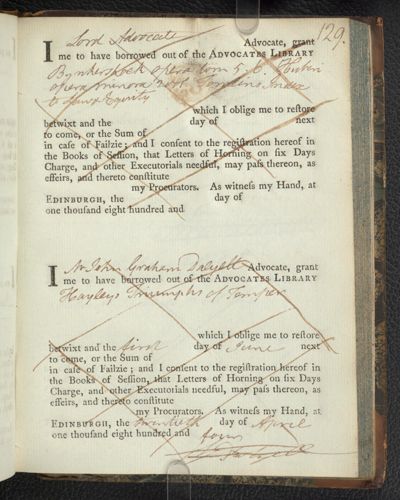 129.
I Lord Advocate Advocate, grant
me to have borrowed out of the ADVOCATES LIBRARY
Bynkershoek opera tom 5
opera minora Index
to Laws Equity
which I oblige me to reſtore
betwixt and the day of next
to come, or the Sum of
in caſe of Failzie; and I conſent to the regiſtration hereof in
the Books of Seſſion, that Letters of Horning on ſix Days
Charge, and other Executorials needful, may paſs thereon, as
effeirs, and thereto conſtitute
my Procurators. As witneſs my Hand, at
EDINBURGH, the day of
one thouſand eight hundred and
I Mr John Graham Dalyell Advocate, grant
me to have borrowed out of the ADVOCATES LIBRARY
Hayley's Triumphs of Temper
which I oblige me to reſtore
betwixt and the first day of June next
to come, or the Sum of
in caſe of Failzie; and I conſent to the regiſtration hereof in
the Books of Seſſion, that Letters of Horning on ſix Days
Charge, and other Executorials needful, may paſs thereon, as
effeirs, and thereto conſtitute
my Procurators. As witneſs my Hand, at
EDINBURGH, the twentieth day of April
one thouſand eight hundred and four
Dalyell